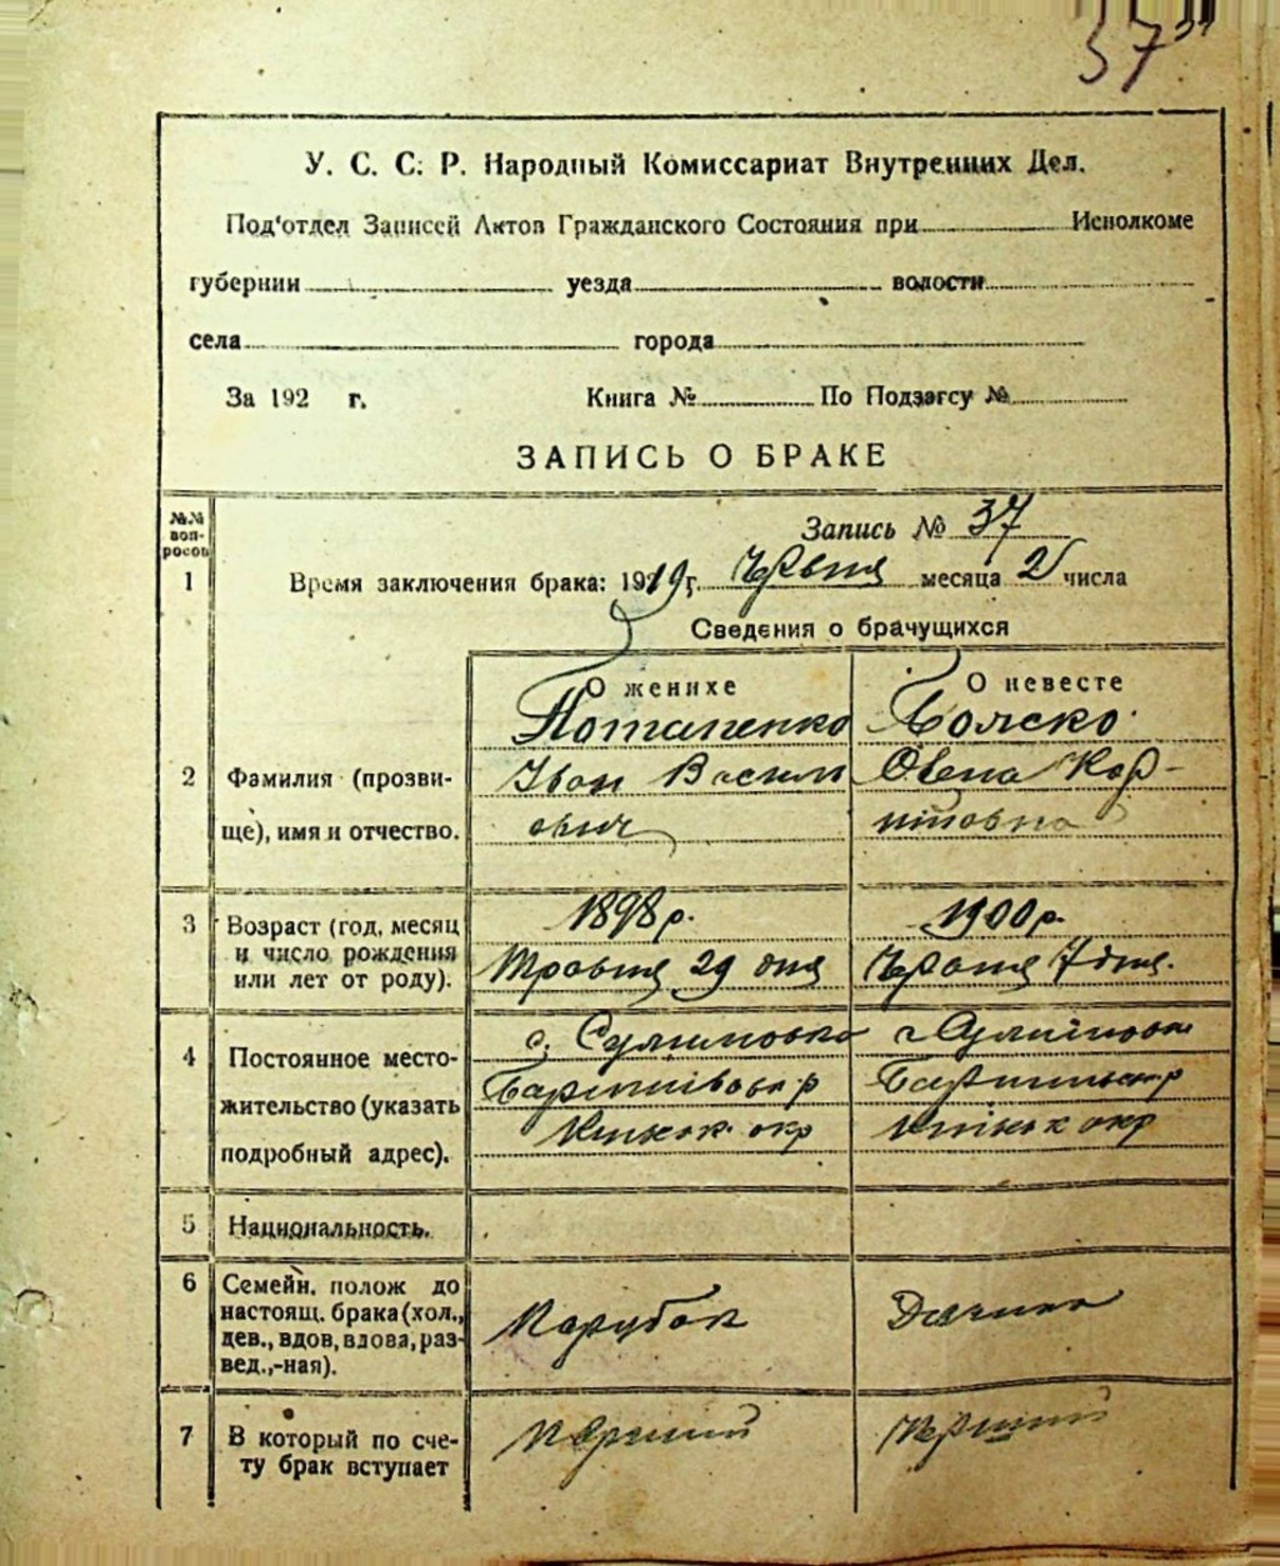 37
У. С. С. Р. Народный Комиссариат Внутренних Дел.
Под'отдел Записей Актов Гражданского Состояния при Исполкоме
губернии уезда волости
села города
За 192 г. Книга № По Подзагсу №
ЗАПИСЬ О БРАКЕ
№№ вопросов
Запись № 37
1 Время заключения брака: 1919 г. Червня месяца 2 числа
Сведения о брачущихся
О женихе О невесте
Потапенко
2 Фамилия (прозви- Іван Васили Олена Кар-
ще), имя и отчество. ович повна
3 Возраст (год, месяц 1898 р. 1900 р.
и число рождения Травня 29 дня Червня 7 дня.
или лет от роду).
с. Сулимовка с. Сулимовка
4 Постоянное место-
жительство (указать окр окр
подробный адрес).
5 Национальность.
6 Семейн. полож до
настоящ. брака (хол., Парубок Дівчина
дев., вдов, вдова, раз-
вед.,-ная).
7 В который по сче- Перший Перший
ту брак вступает